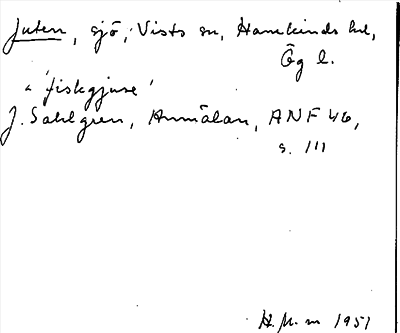 Juten, sjö, Vists sn, Hanekinds hd,
Ög l.
< 'fiskgjuse'
J. Sahlgren, Anmälan, ANF 46,
s. 111
H. M-m 1951